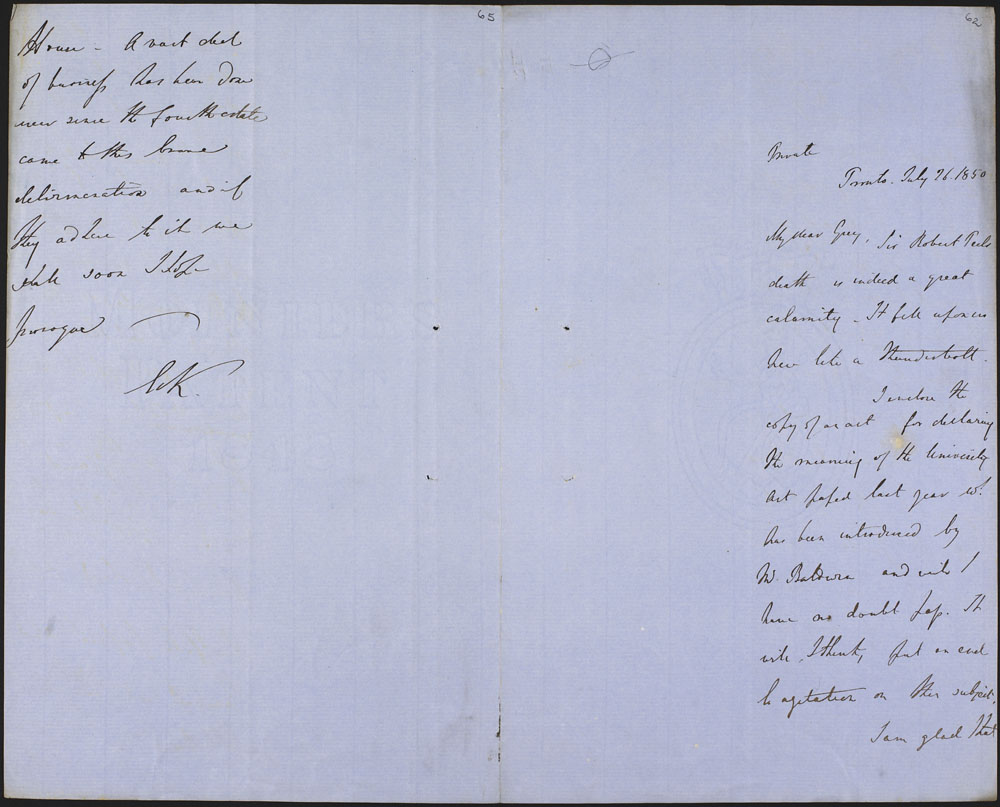 65
House – A vast deal
of business has been done
even since the fourth estate
came to this brave
determination and if
they adhere to it we
shall soon I hope
prorogue
E&K.
62
Private
Toronto. July 26. 1850
My dear Grey, Sir Robert Peels
death is indeed a great
calamity – It fell upon us
here like a Thunderbolt.
I enclose the
copy of an act for declaring
the meaning of the University
Act passed last year wh.
has been introduced by
Mr. Baldwin and will I
have no doubt pass. It
will, I think, put an end
to agitation on this subject.
I am glad that